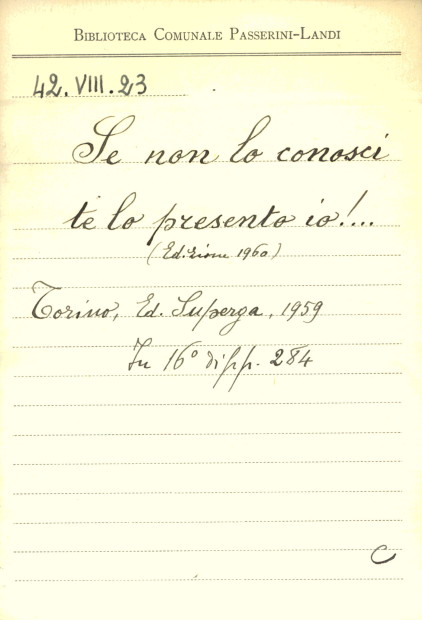 BIBLIOTECA COMUNALE PASSERINI-LANDI
42.VIII.23
Se non lo conosci
te lo presento io!...
(Edizione 1960)
Torino, Ed. Superga, 1959
In 16° di pp. 284
C